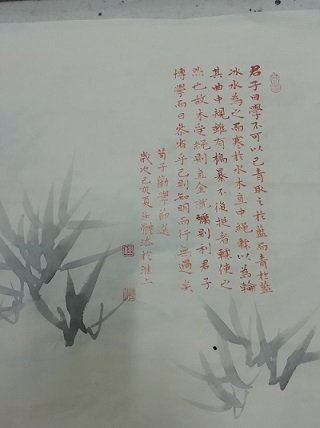 君子曰學不可以已青取之於藍而青於藍
冰水為之而寒於水木直中繩輮以為輪
其曲中規雖有槁暴不復挺者輮使之
然也故木受繩則直金就礪則利君子
博學而日參省乎己則知明而行無過矣
荀子勸學節選
歲次己亥夏於淮上